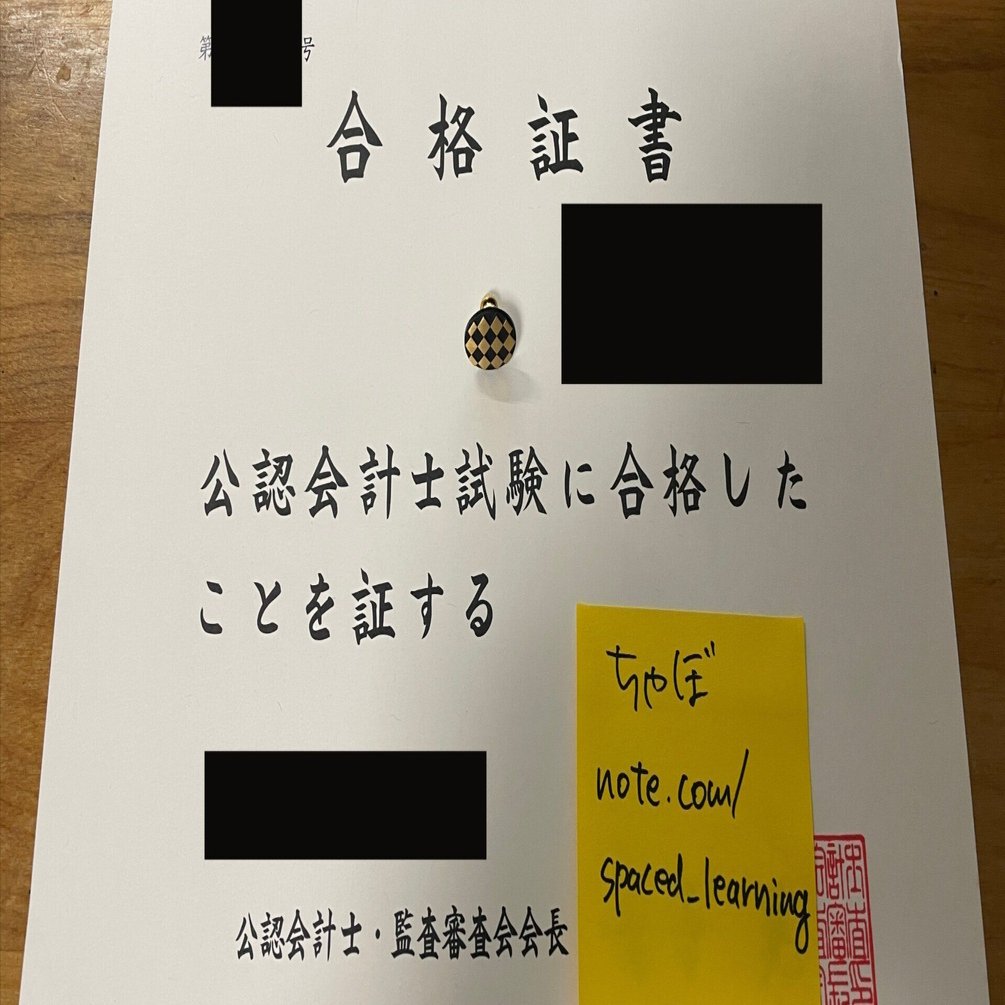 第
号
合格証書
公認会計士試験に合格した
ことを証する
ちゃぼ
note.com/
spaced_learning
公認会計士・監査審査会会長